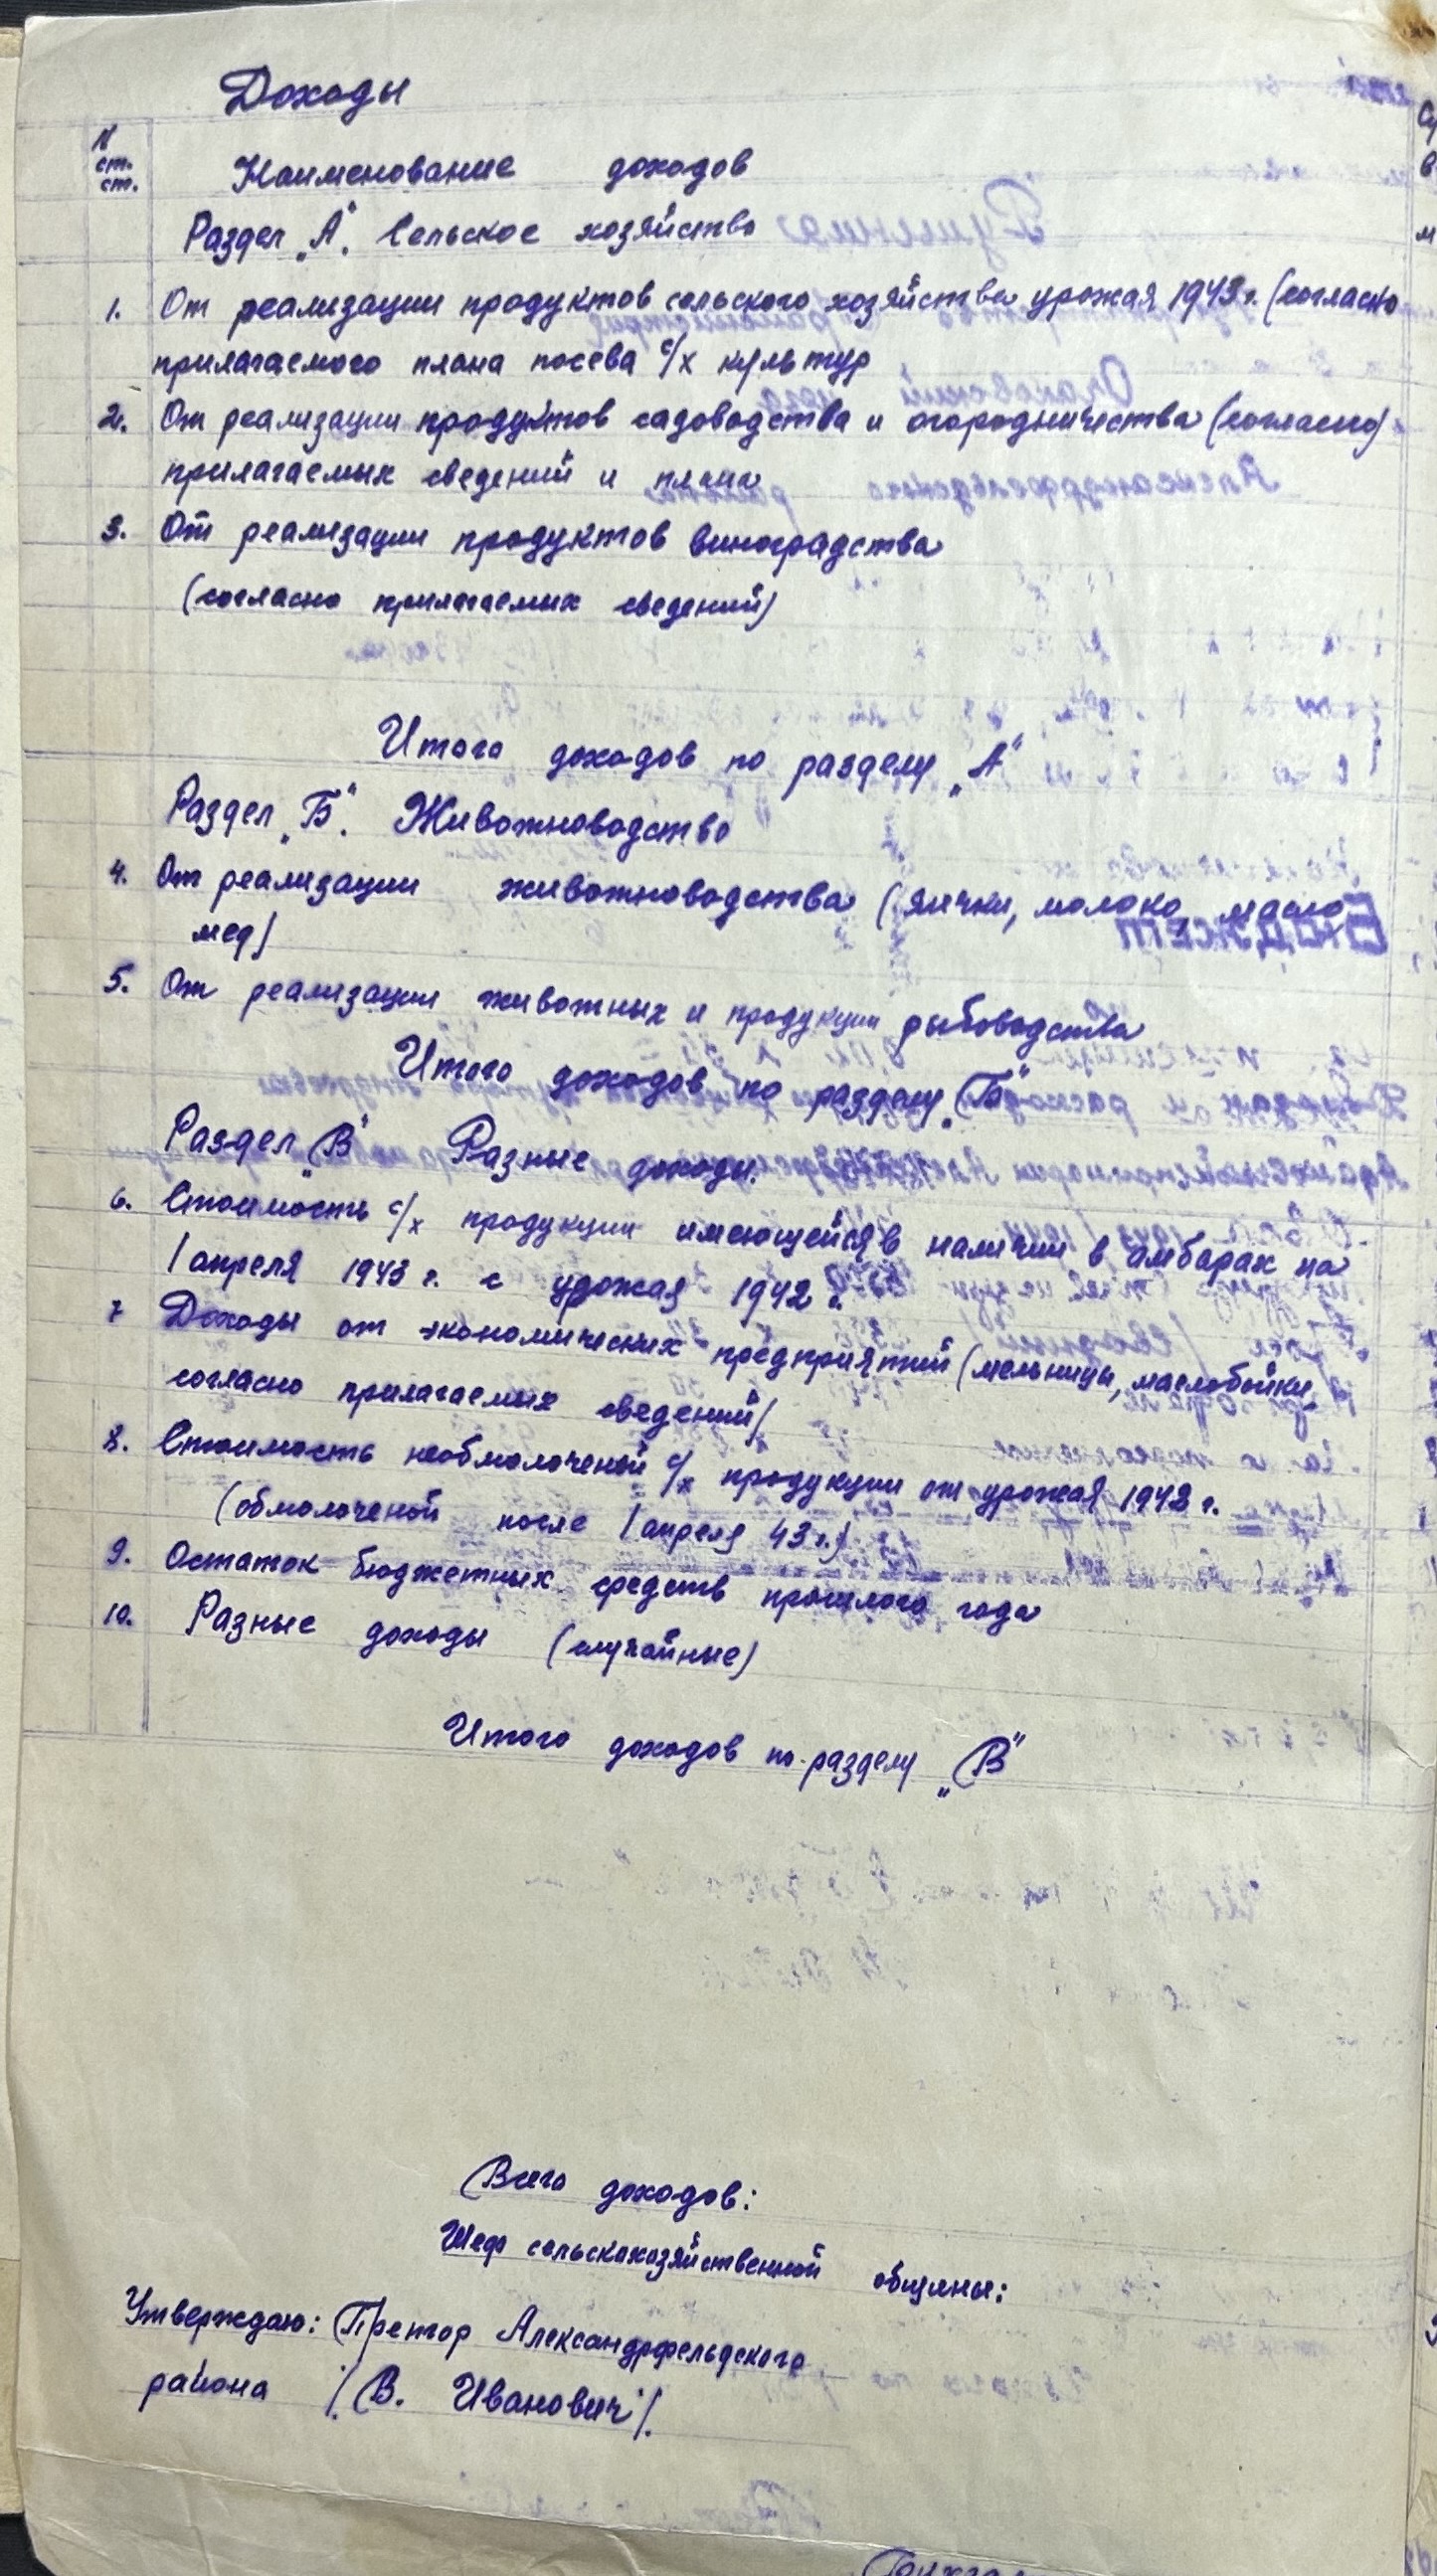 Доходы
N
ст.
ст.
Наименование доходов
Раздел „А“. Сельское хозяйство
1. От реализации продуктов сельского хозяйства урожая 1943 г. (согласно
прилагаемого плана посева с/х культур
2. От реализации продуктов садоводства и огородничества (согласно)
прилагаемых сведений и плана
3. От реализации продуктов виноградства
(согласно прилагаемых сведений)
Итого доходов по разделу „А“
Раздел „Б“. Животноводство
4. От реализации животноводства (яички, молоко, масло
мед)
5. От реализации животных и продукции рыбоводства
Итого доходов по разделу „Б“
Раздел „В“ Разные доходы.
6. Стоимость с/х продукции имеющейся в наличии в амбарах на
1 апреля 1943 г. с урожая 1942 г.
7 Доходы от экономических предприятий (мельницы, маслобойки,
согласно прилагаемых сведений)
8. Стоимость необмолоченой с/х продукции от урожая 1942 г.
(обмолоченой после 1 апреля 43 г.)
9. Остаток бюджетных средств прошлого года
10. Разные доходы (случайные)
Итого доходов по разделу „В“
Всего доходов:
Шеф сельскохозяйственной общины:
Утверждаю: Претор Александрфельдского
района /. В. Иванович /.